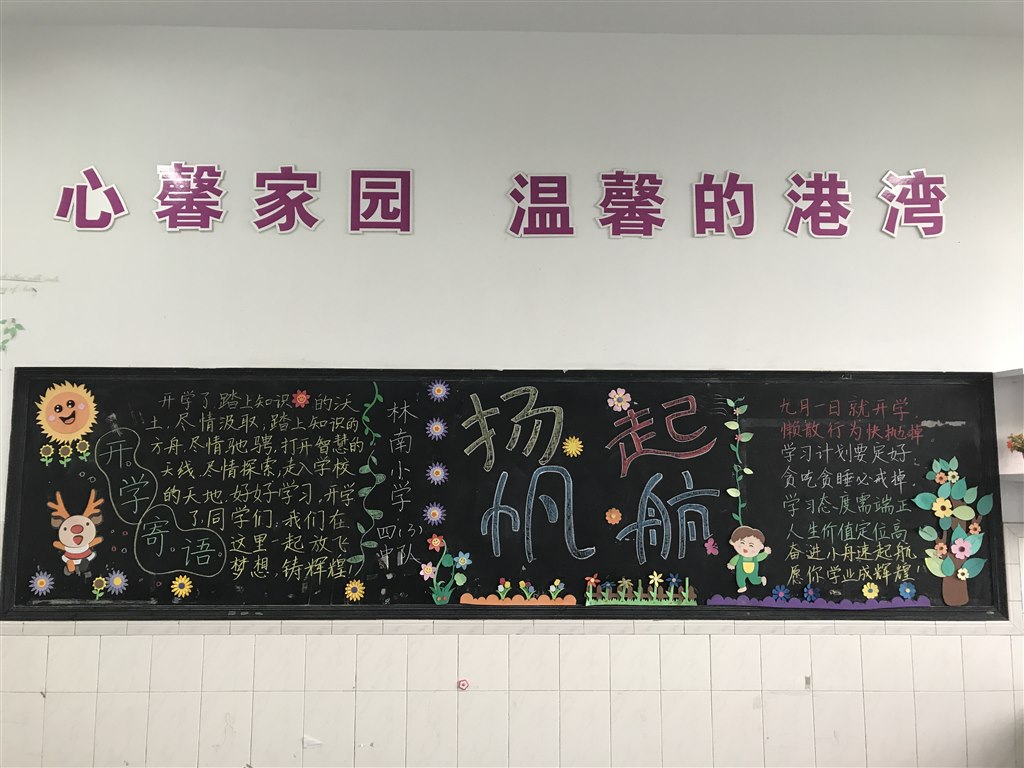 心馨家园 温馨的港湾
开学了踏上知识的沃
土,尽情汲取,踏上知识的
方舟,尽情驰骋,打开智慧的
天线,尽情探索,走入学校
的天地,好好学习,开学
了,同学们,我们在
这里一起放飞
梦想,铸辉煌!
开学寄语
林南小学
四(3)
中队
扬帆起航
九月一日就开学,
懒散行为快抛掉
学习计划要定好,
贪吃贪睡必戒掉,
学习态度需端正
人生价值定位高
奋进小舟速起航,
愿你学业成辉煌!